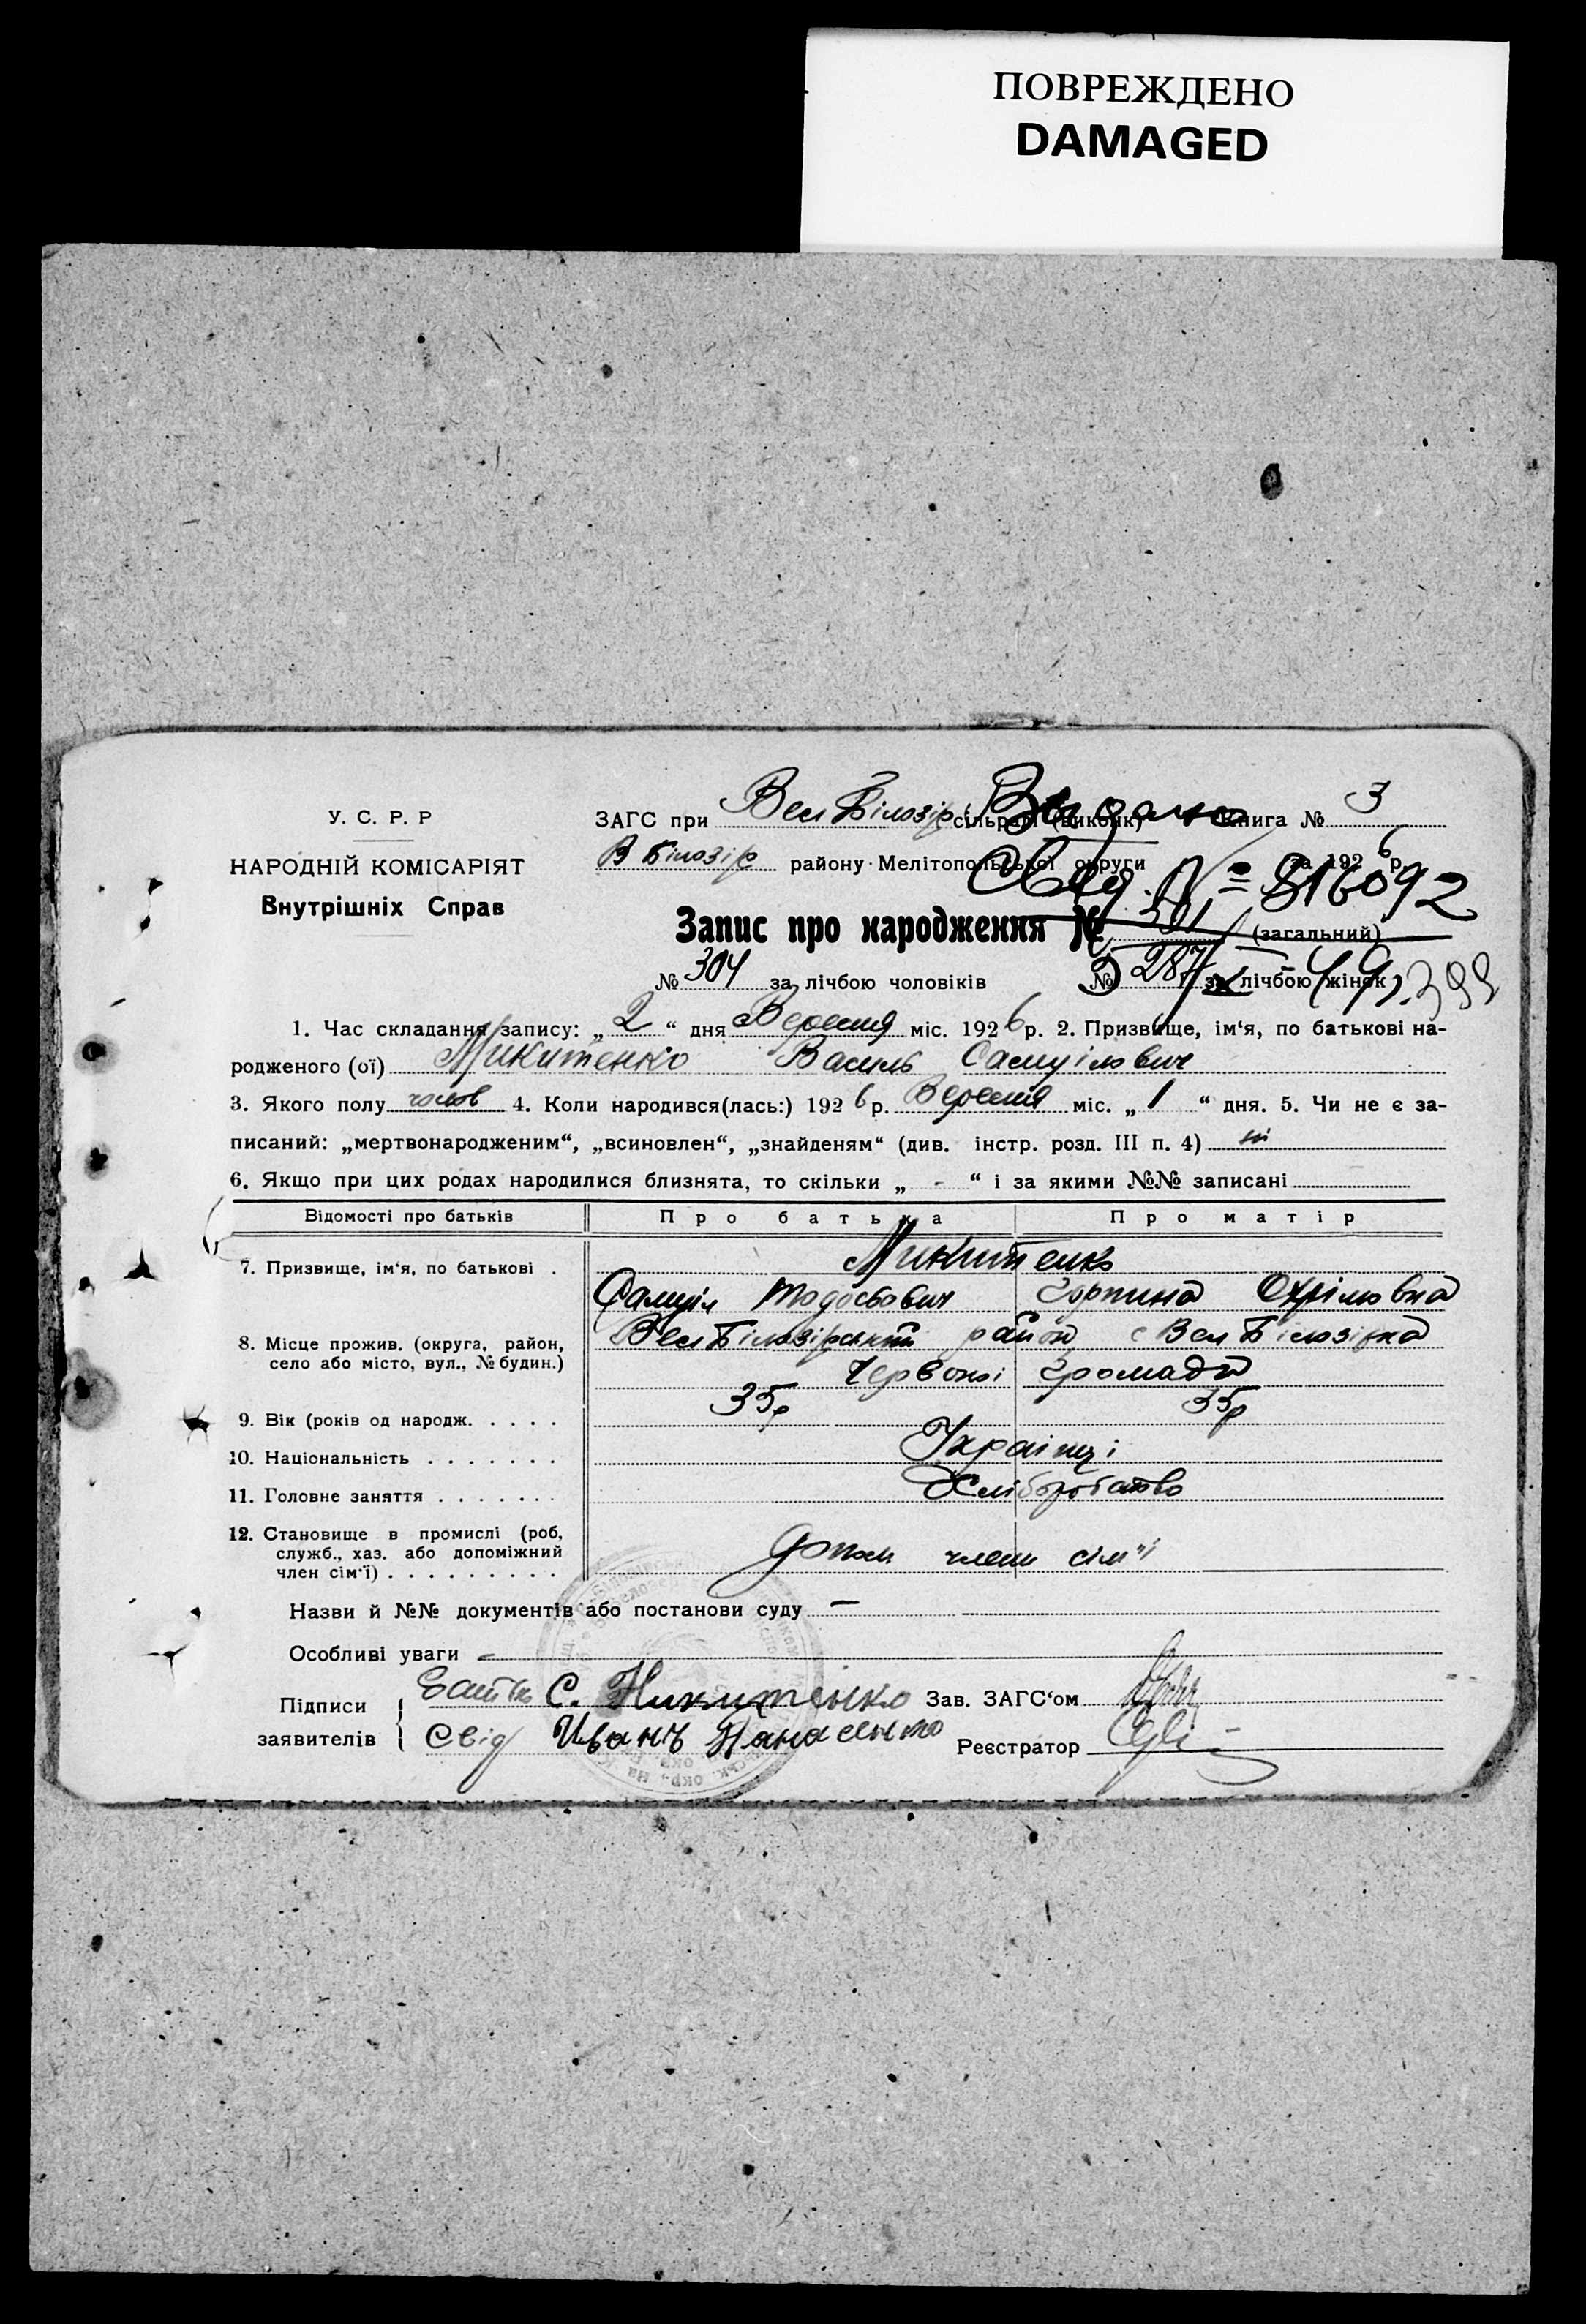 ПОВРЕЖДЕНО
DAMAGED
У. С. Р. Р
НАРОДНІЙ КОМІСАРІЯТ
Внутрішніх Справ
ЗАГС при Вел Білозір сільраді (викойк) Книга № 3
В Білозір району Мелітопольської округи за 1926 р.
Видано
Свид. № 816092
Запис про народження № 591 (загальний)
№ 304 за лічбою чоловіків № 287 за лічбою жінок
1. Час складання запису: „ 2 “ дня Вересня міс. 1926 р. 2. Призвище, ім‘я, по батькові на-
родженого (ої) Микитенко Василь Самуілович
3. Якого полу чолов 4. Коли народився(лась:) 1926 р. Вересня міс. „ 1 “ дня. 5. Чи не є за-
писаний: „мертвонародженим“, „всиновлен“, „знайденям“ (див. інстр. розд. III п. 4) ні
6. Якщо при цих родах народилися близнята, то скільки „ - “ і за якими №№ записані
Відомості про батьків Про батька Про матір
7. Призвище, ім‘я, по батькові . Микитенко
Самуіл Тодосьович Горпина Охрімовна
8. Місце прожив. (округа, район, село або місто, вул., № будин.) Вел Білозірський район с Вел Білозірка
Червоної Громади
9. Вік (років од народж. . . . . 35р 35р
10. Національність . . . . . . . Українці
11. Головне заняття . . . . . . . Хліборобство
12. Становище в промислі (роб,
служб., хаз. або допоміжний
член сім‘ї) . . . . . . . . . члени сім"ї
Назви й №№ документів або постанови суду —
Особливі уваги -
Підписи заявителів { Батько С. Никитенко Зав. ЗАГС‘ом
Свід Иванъ Панасенко Реєстратор